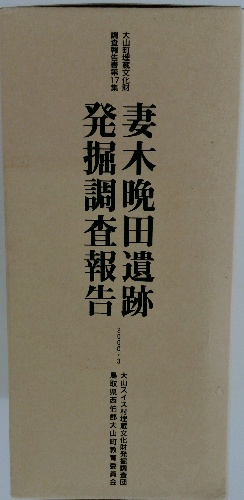 大山町埋蔵文化財
調査報告書第17集
妻木晩田遺跡
発掘調査報告
2000・3
大山スイス村埋蔵文化財発掘調査団
鳥取県西伯郡大山町教育委員会